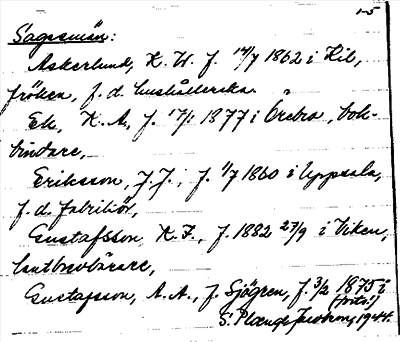 1-5
Sagesmän:
Askerlund, K. W. f. 14/7 1862 i Kil,
fröken, f. d. hushållerska
Ek, K. A, f. 17/1 1877 i Örebro, bok-
bindare,
Eriksson, J. J., f. 1/7 1860 i Uppsala,
f. d. fabrikör,
Gustafsson, K. F., f. 1882 27/9 i Viken,
lantbrevbärare,
Gustafsson, A. A., f. Sjögren, f. 3/2 1875 i
(forts.!)
S. 1944.